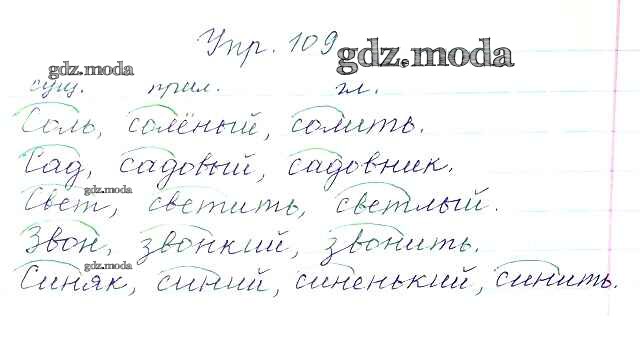 Упр. 109 gdz.moda
gdz.moda
сущ. прил. гл.
Соль, солёный, солить.
Сад, садовый, садовник.
gdz.moda
Свет, светить, светлый.
Звон, звонкий, звонить.
gdz.moda
Синяк, синий, синенький, синить.